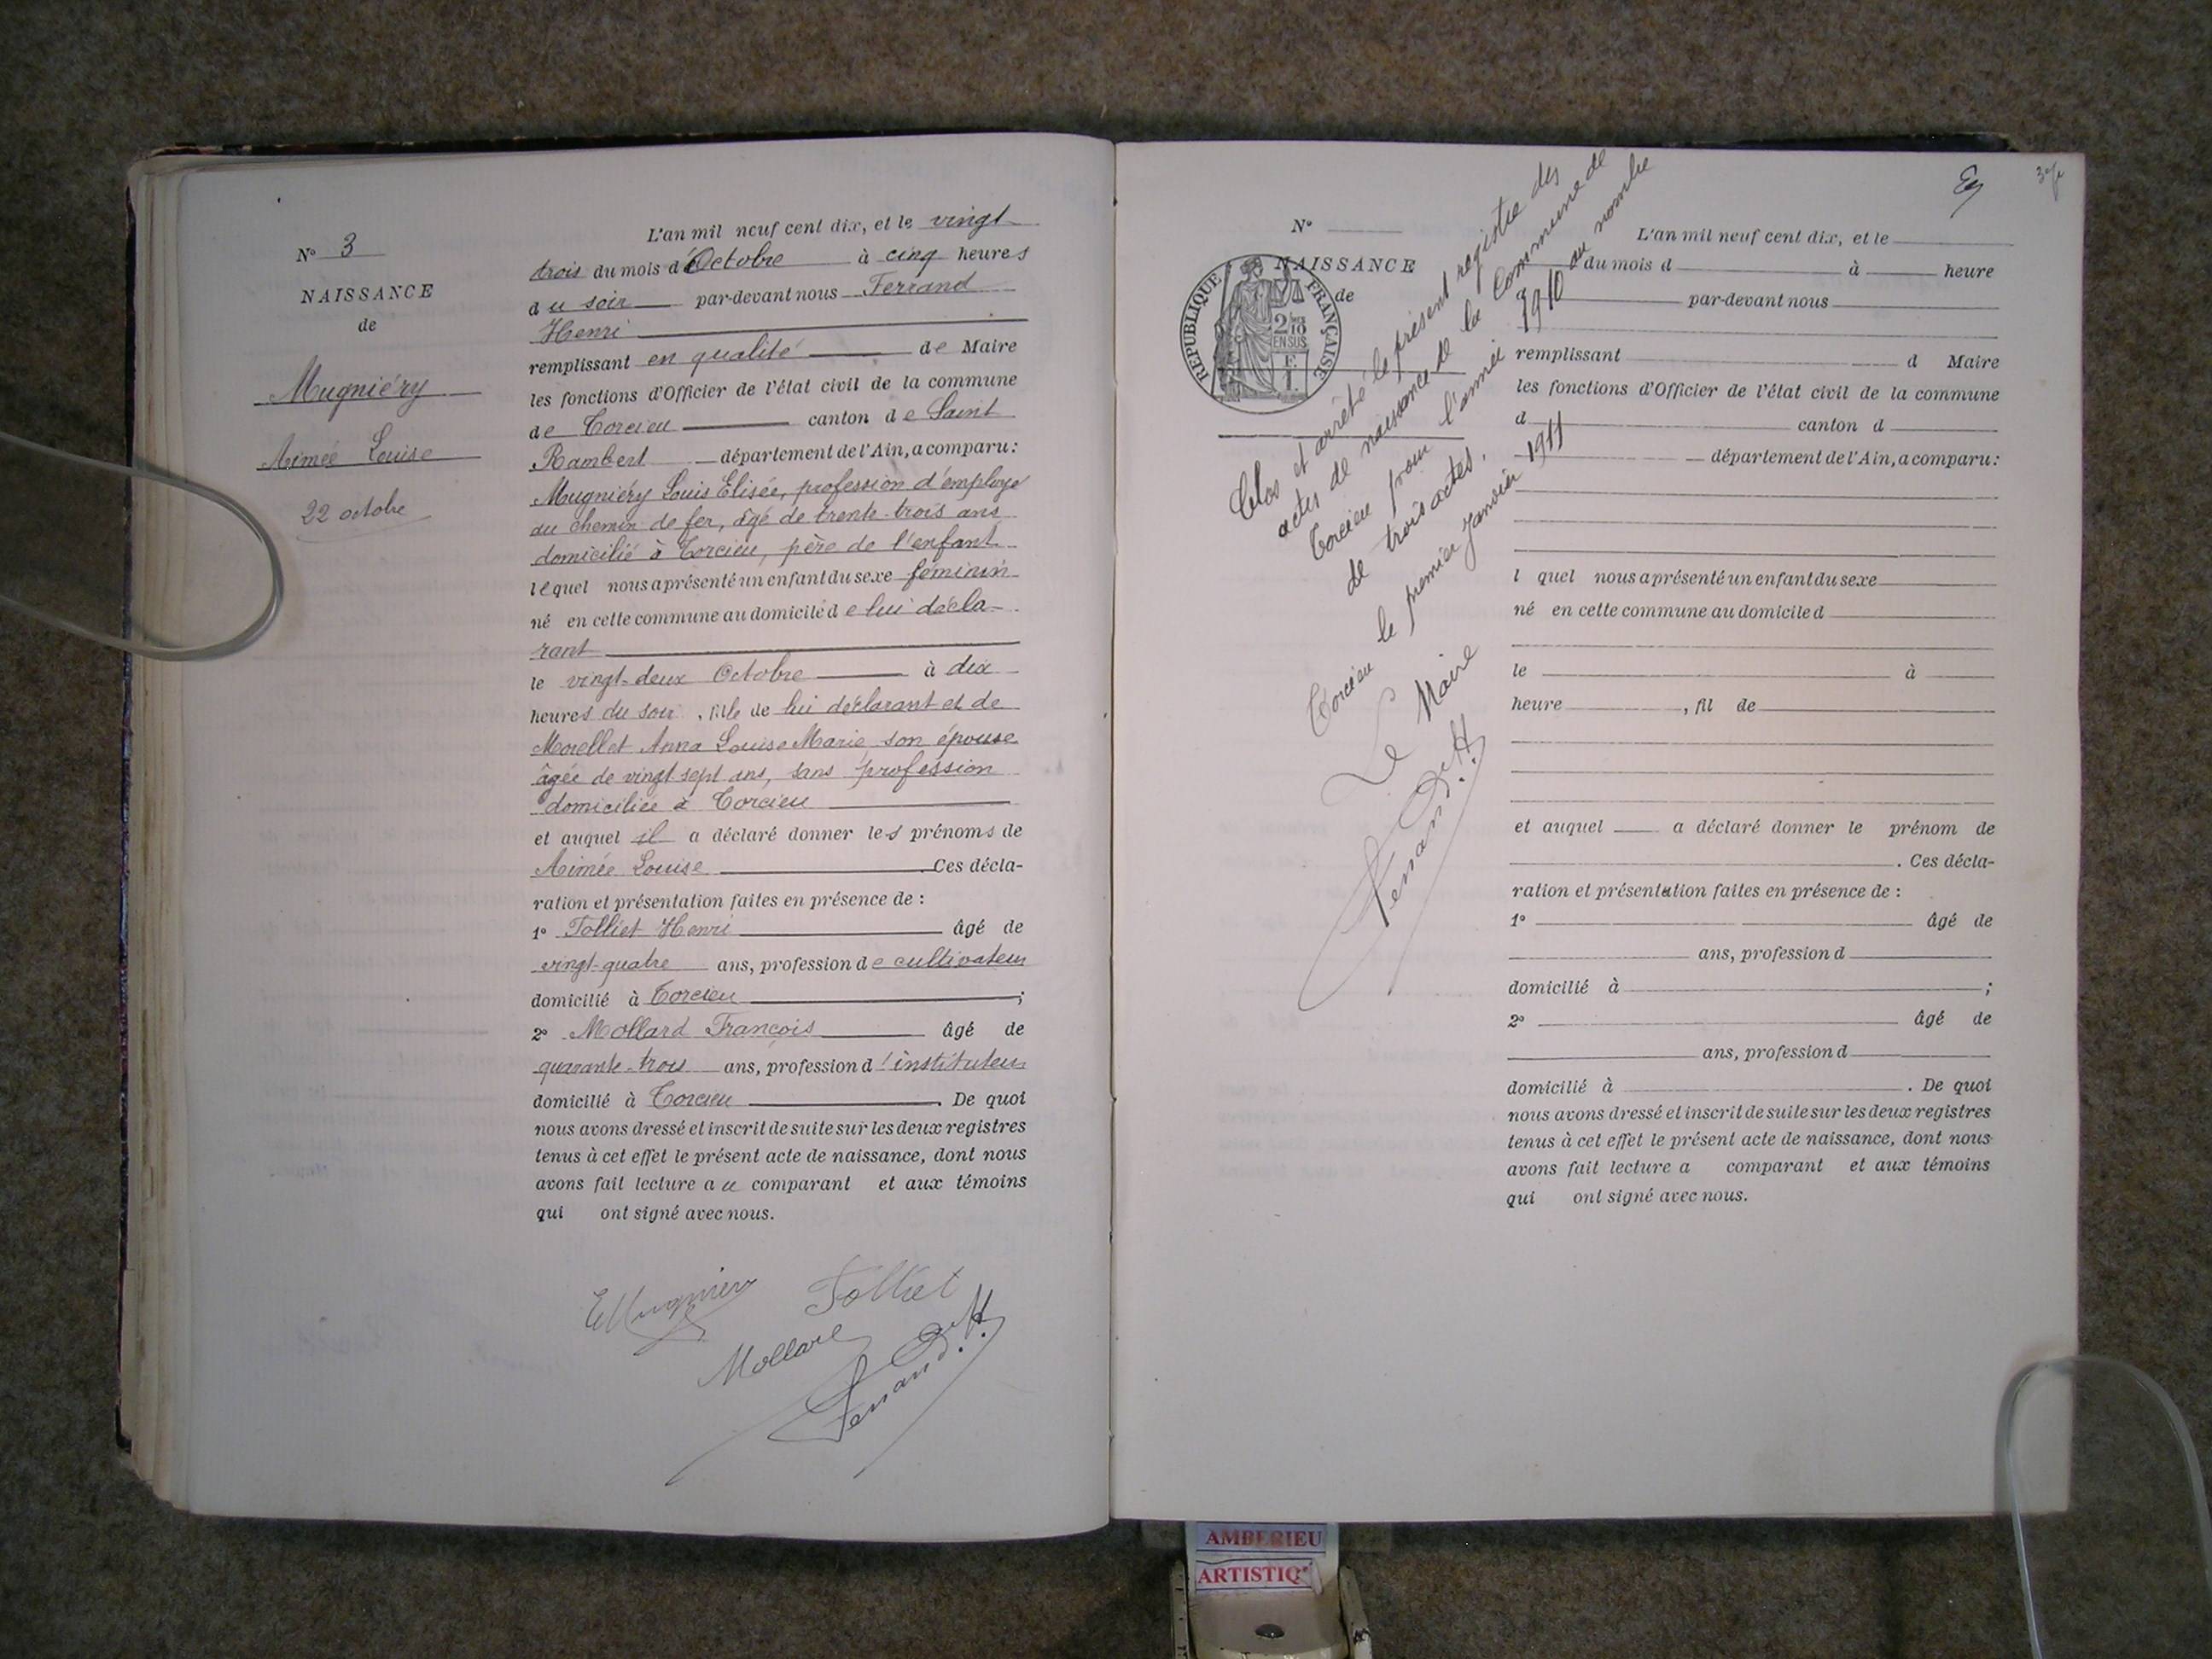 N° 3
NAISSANCE
de
Mugniéry
Aimée Louise
22 octobre
L'an mil neuf cent dix, et le vingt
trois du mois d'Octobre à cinq heures
du soir par-devant nous Ferrand
Henri
remplissant en qualité de Maire
les fonctions d'Officier de l'état civil de la commune
de Torcieu canton de Saint
Rambert département de l'Ain, a comparu :
Mugniéry Louis Elisée, profession d'employé
au chemin de fer, âgé de trente-trois ans
domicilié à Torcieu, père de l'enfant
lequel nous a présenté un enfant du sexe féminin
né en cette commune au domicile de lui décla-
rant
le vingt-deux Octobre à dix
heures du soir, fille de lui déclarant et de
Morellet Anna Louise Marie son épouse
âgée de vingt sept ans, sans profession
domiciliée à Torcieu
et auquel il a déclaré donner les prénoms de
Aimée Louise . Ces décla-
ration et présentation faites en présence de :
1° Tolliet Henri âgé de
vingt-quatre ans, profession de cultivateur
domicilié à Torcieu ;
2° Mollard François âgé de
quarante-trois ans, profession d'instituteur
domicilié à Torcieu . De quoi
nous avons dressé et inscrit de suite sur les deux registres
tenus à cet effet le présent acte de naissance, dont nous
avons fait lecture au comparant et aux témoins
qui ont signé avec nous.
EMugniery Tolliet
Mollard
Ferrand. H.
N°
NAISSANCE
de
REPUBLIQUE FRANÇAISE
2/10
EN SUS
Clos et arrêté le présent registre des
actes de naissance de la Commune de
Torcieu pour l'année 1910 au nombre
de trois actes.
Torcieu le premier Janvier 1911
Le Maire
Ferrand. H.
L'an mil neuf cent dix, et le
du mois d à heure
par-devant nous
remplissant d Maire
les fonctions d'Officier de l'état civil de la commune
d canton d
département de l'Ain, a comparu :
l quel nous a présenté un enfant du sexe
né en cette commune au domicile d
le à
heure , fil de
et auquel a déclaré donner le prénom de
. Ces décla-
ration et présentation faites en présence de :
1° âgé de
ans, profession d
domicilié à ;
2° âgé de
ans, profession d
domicilié à . De quoi
nous avons dressé et inscrit de suite sur les deux registres
tenus à cet effet le présent acte de naissance, dont nous
avons fait lecture a comparant et aux témoins
qui ont signé avec nous.
AMBERIEU
ARTISTIQ